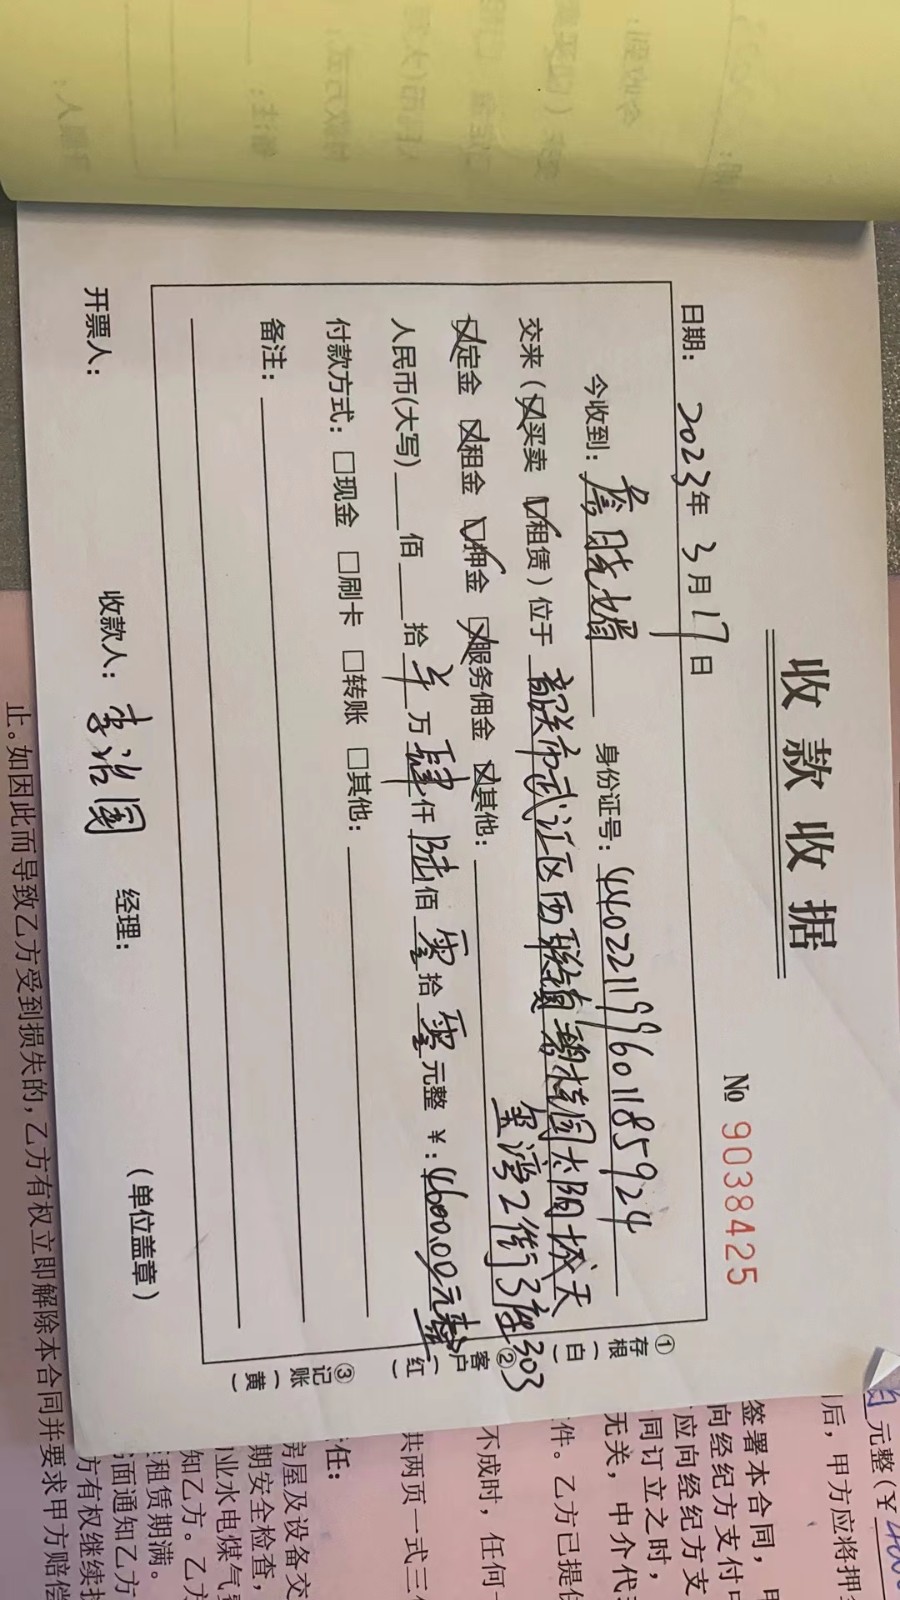 收款收据
№ 9038425
日期：2023年3月17日
今收到：詹晓媚 身份证号：440221199601185924
交来（☒买卖 ☑租赁）位于 韶关市武江区西联镇碧桂园太阳城天
玺湾2街3座303
☒定金 ☒租金 ☑押金 ☒服务佣金 ☒其他：
人民币(大写) 佰 拾 万肆仟陆佰零拾零元整 ￥：4600.00元整
付款方式：□现金 □刷卡 □转账 □其他：
备注：
开票人： 收款人：李治国 经理： （单位盖章）
①存根（白）
②客户（红）
③记账（黄）
元整(￥
后，甲方应将押
签署本合同，甲
向经纪方支付中
应向经纪方支
同订立之时，
无关，中介代
件。乙方已提
不成时，任何
共两页一式三
任：
房屋及设备交
期安全检查，
业水电煤气
知乙方。乙方
租赁期满。
面通知乙方
方有权继续
止。如因此而导致乙方受到损失的，乙方有权立即解除本合同并要求甲方赔偿